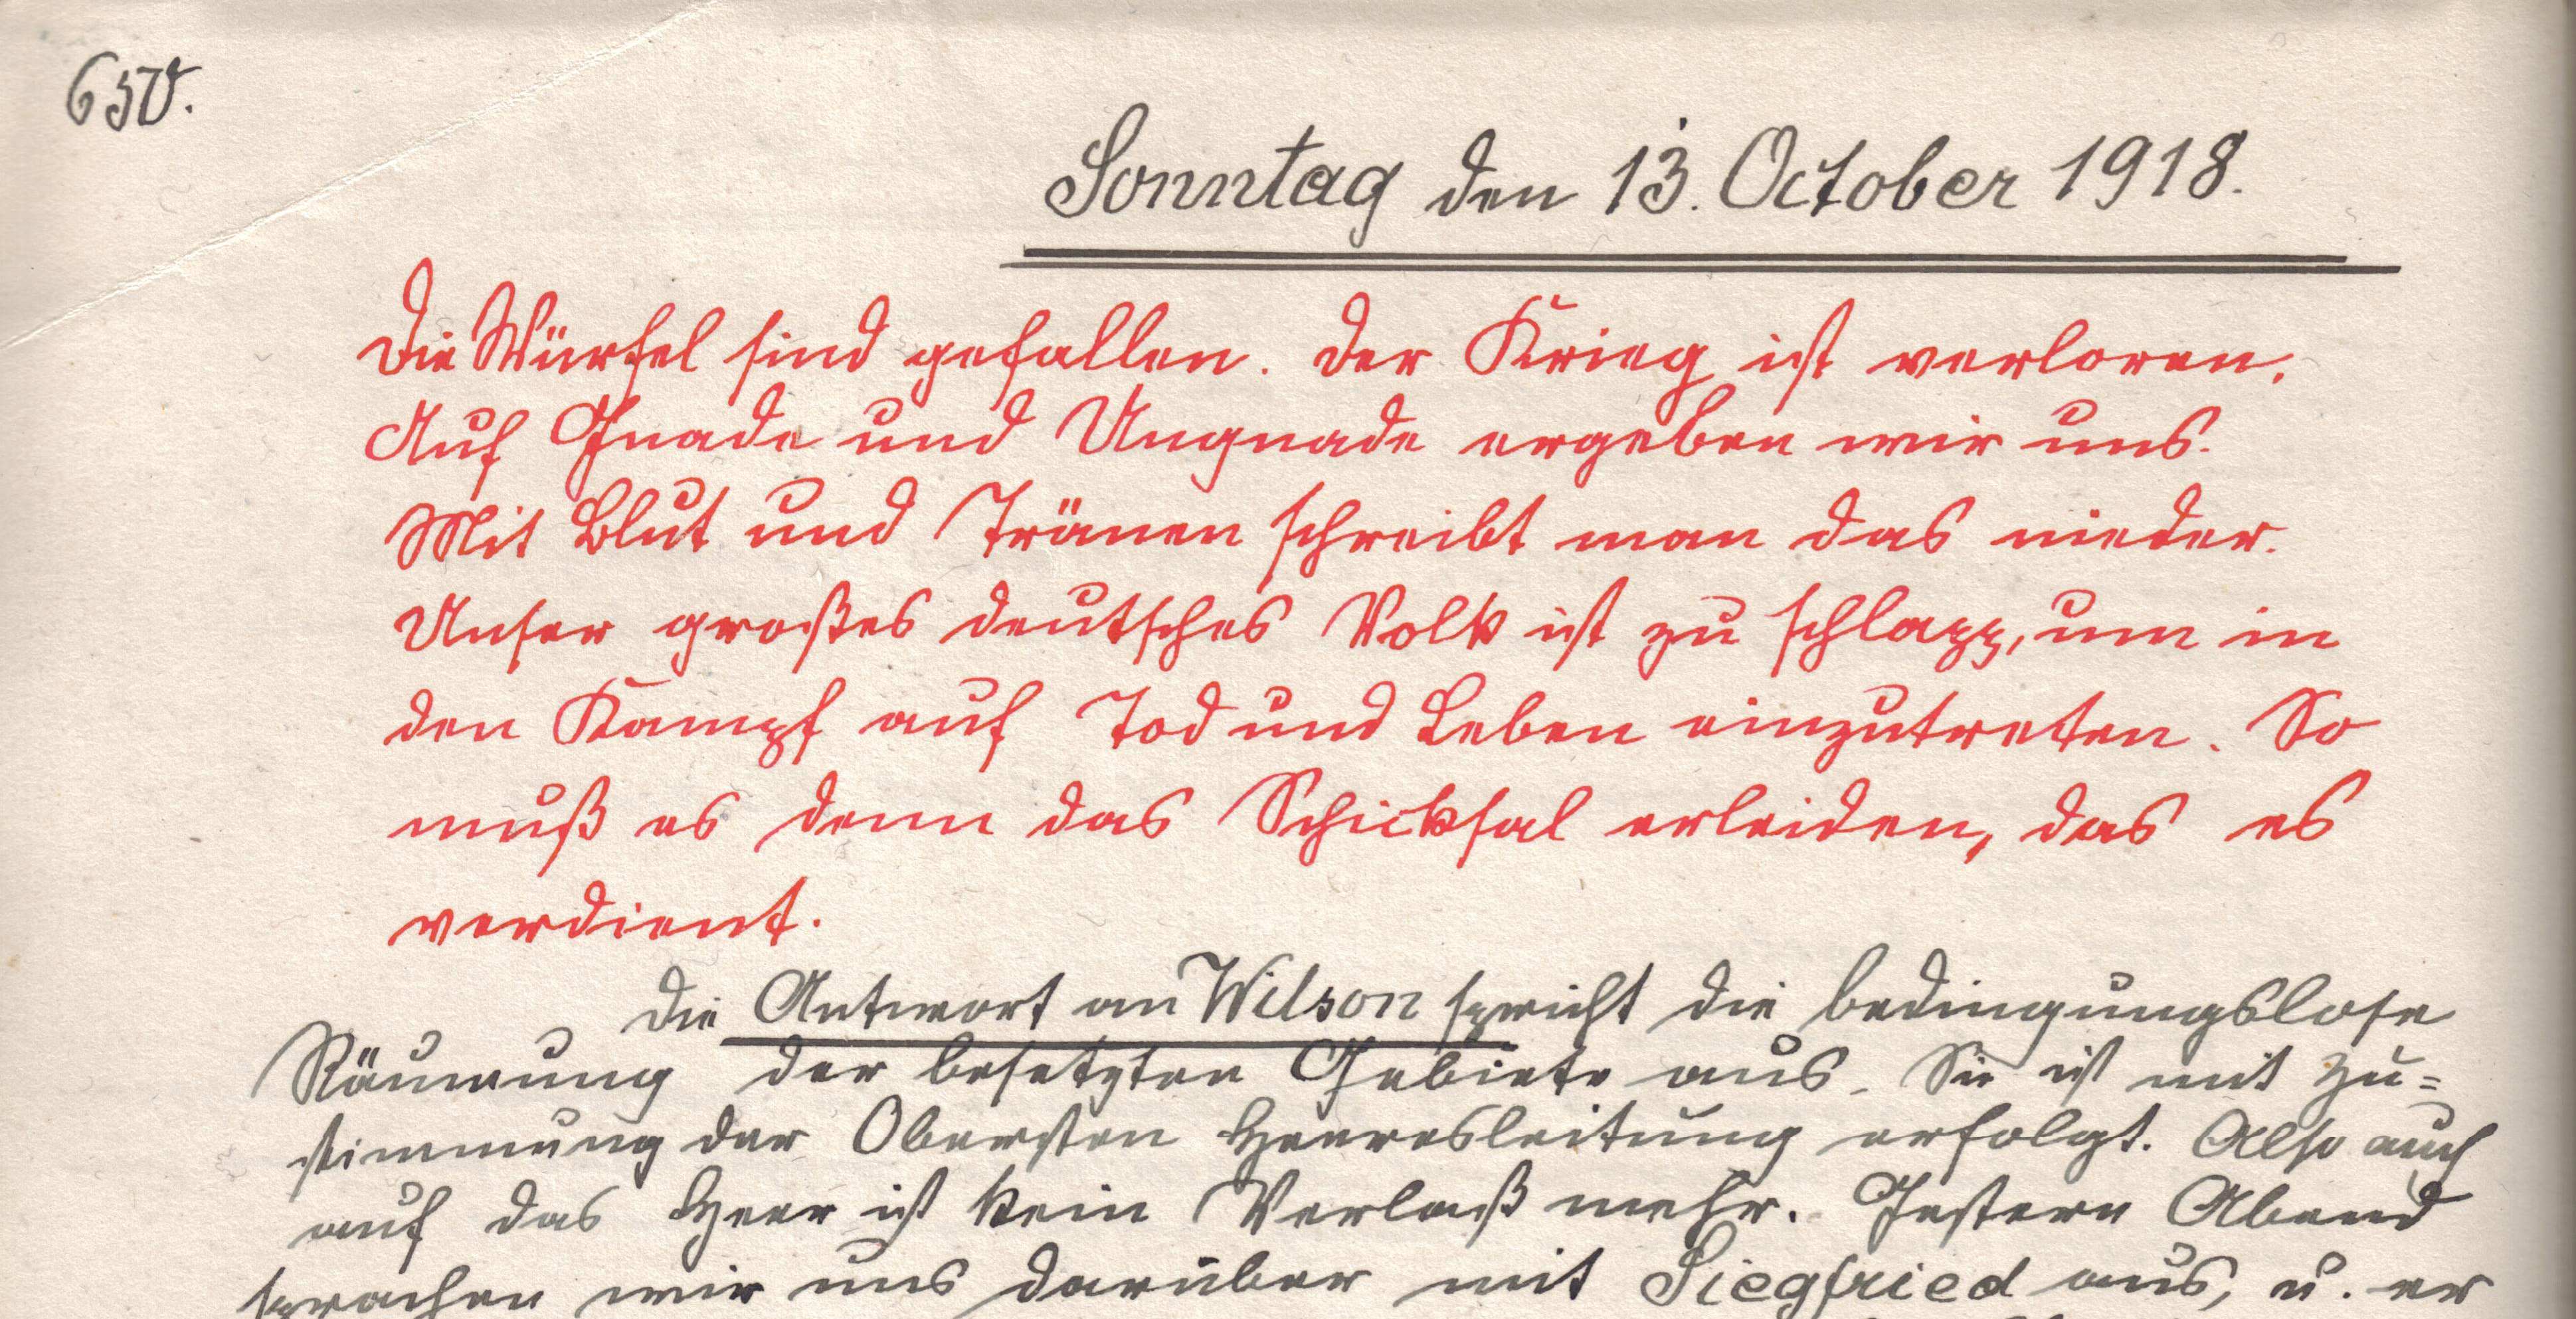 Sonntag den 13. October 1918.
Die Würfel sind gefallen. Der Krieg ist verloren.
Auf Gnade und Ungnade ergeben wir uns.
Mit Blut und Tränen schreibt man das nieder.
Unser großes deutsches Volk ist zu schlapp, um in
den Kampf auf Tod und Leben einzutreten. So
muß es denn das Schicksal erleiden, das es
verdient.
Die Antwort an Wilson spricht die bedingungslose
Räumung der besetzten Gebiete aus. Sie ist mit Zu=
stimmung der Obersten Heeresleitung erfolgt. Also auch
auf das Heer ist kein Verlaß mehr. Gestern Abend
sprachen wir uns darüber mit Siegfried aus, u. er